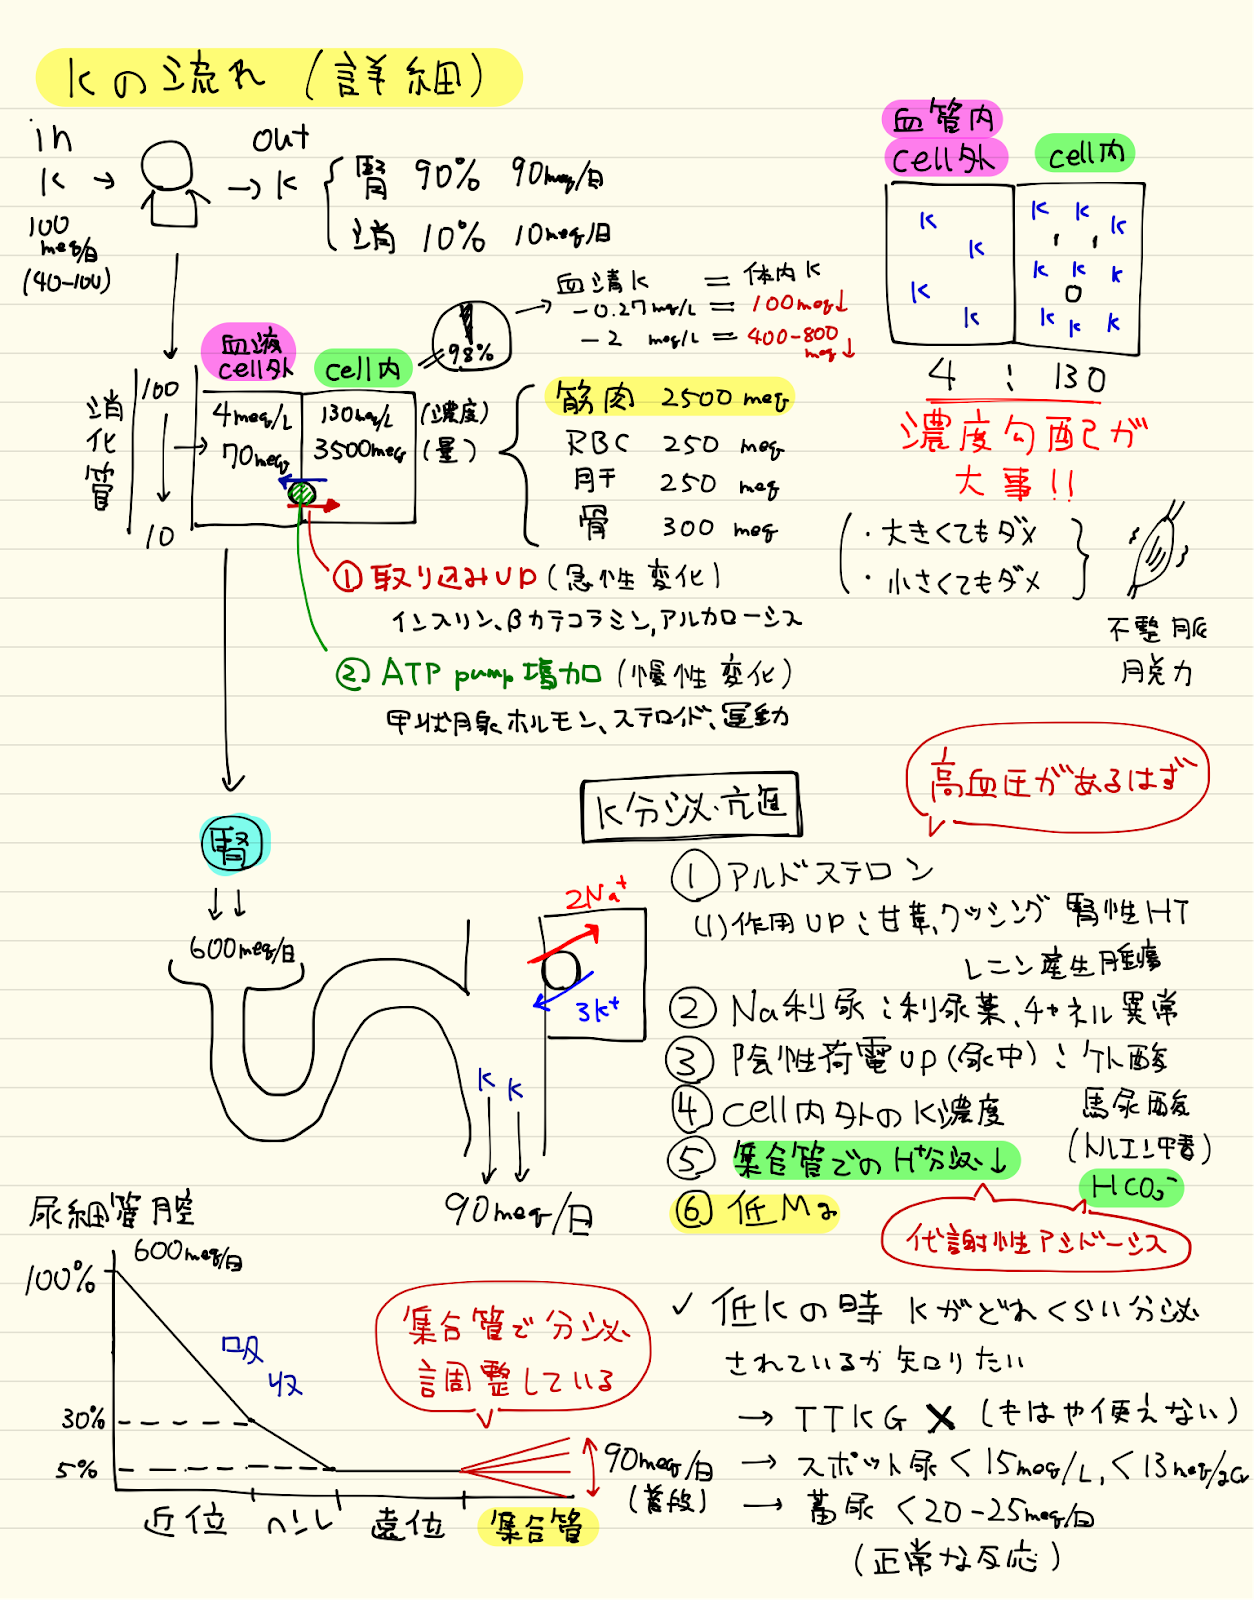 Kの流れ (詳細)
in
K →
100
meq/日
(40-100)
out
→ K
腎 90% 90meq/日
消 10% 10meq/日
血管内
cell外
cell内
K K K K
K K K K K K K K K
4 : 130
濃度勾配が
大事!!
・大きくてもダメ
・小さくてもダメ
不整脈
脱力
血清K = 体内K
-0.27meq/L = 100meq↓
-2 meq/L = 400-800
meq↓
98%
血液
cell外
cell内
消化管
100
10
4meq/L 130meq/L (濃度)
70meq 3500meq (量)
筋肉 2500meq
RBC 250 meq
肝 250 meq
骨 300 meq
① 取り込みUP (急性変化)
インスリン、βカテコラミン,アルカローシス
② ATP pump 増加 (慢性変化)
甲状腺ホルモン、ステロイド、運動
腎
600meq/日
2Na⁺
3K⁺
K K
90meq/日
K分泌亢進
高血圧があるはず
① アルドステロン
(1)作用UP:甘草,クッシング 腎性HT
レニン産生腫瘍
② Na利尿:利尿薬、チャネル異常
③ 陰性荷電UP(尿中):ケト酸
馬尿酸
(トルエン中毒)
HCO₃⁻
④ cell内外のK濃度
⑤ 集合管でのH⁺分泌↓
⑥ 低Mg
代謝性アシドーシス
尿細管腔
600meq/日
100%
30%
5%
吸収
近位 ヘンレ 遠位 集合管
集合管で分泌
調整している
90meq/日
(普段)
✓ 低Kの時 Kがどれくらい分泌
されているか知りたい
→ TTKG ✗ (もはや使えない)
→ スポット尿<15meq/L,<13meq/gCr
→ 蓄尿<20-25meq/日
(正常な反応)